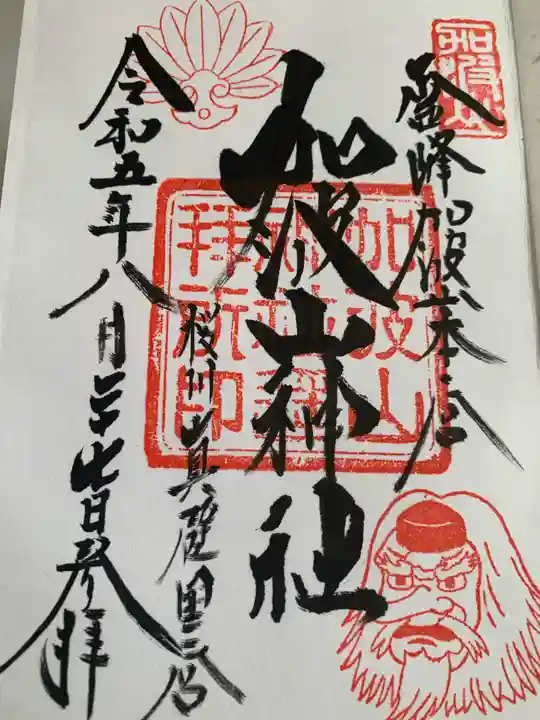 霊峰加波山本宮
加波山神社
桜川市真壁里宮
令和五年八月二十七日参拝
加波山
加波山
神社
拝
印